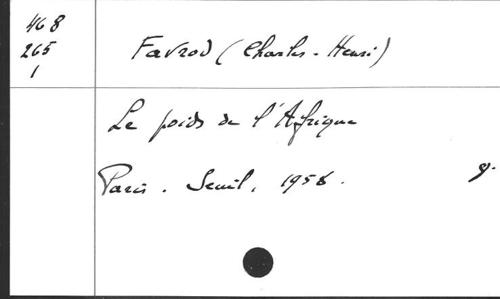 468
265
1
Favrod (Charles-Henri)
Le poids de l'Afrique
Paris. Seuil, 1958.